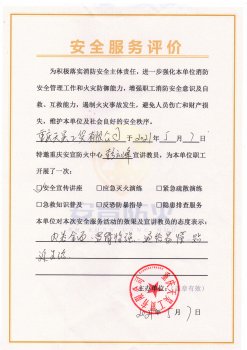 安全服务评价
为积极落实消防安全主体责任，进一步强化本单位消防
安全管理工作和火灾防御能力，增强职工消防安全意识及自
救、互救能力，遏制火灾事故发生，避免人员伤亡和财产损
失，维护本单位及社会良好的安全秩序。
于2021年5月7日
特邀重庆安宣防火中心 宣讲教员，为本单位职工
开展了一次：
安全宣传讲座 □应急灭火演练 □紧急疏散演练
□急救知识普及 □反恐防暴指导 □隐患排查服务
本单位对本次安全服务活动的效果及宣讲教员的态度表示：
内容全面
单位：（盖章有效）
2021年5月7日